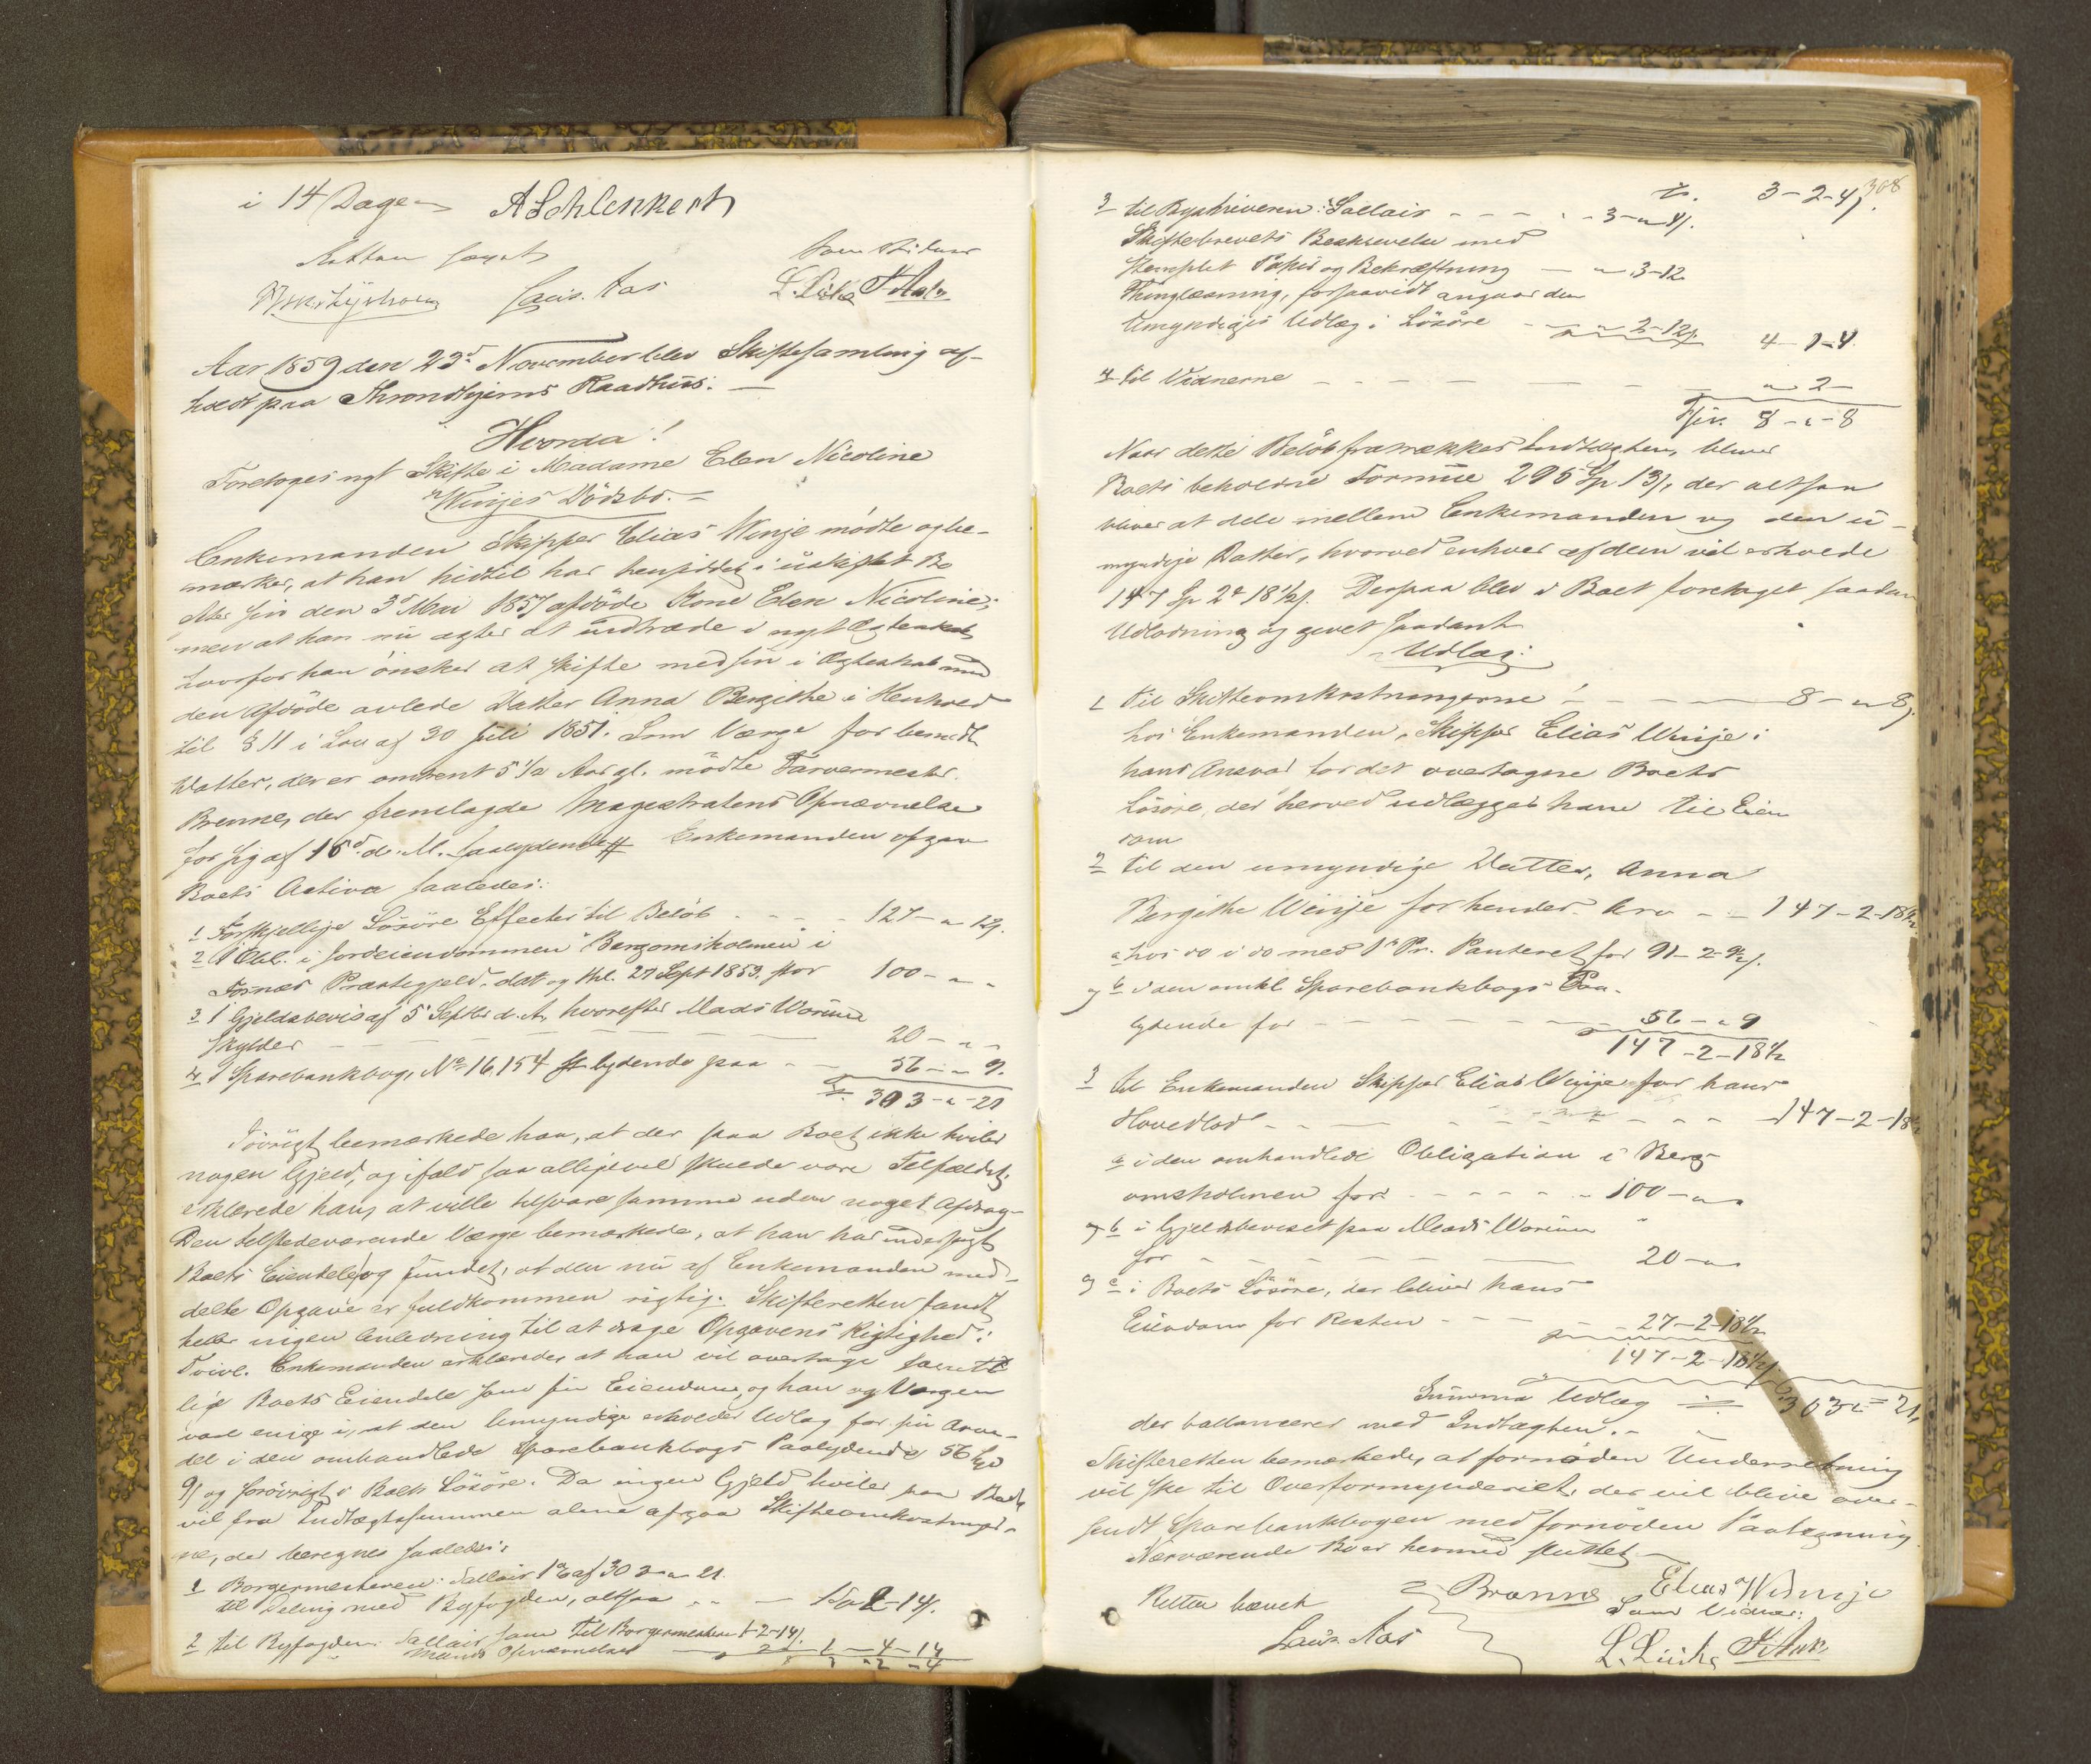 i 14 Dage
ASchlenkert
Retten hævet
Som Vidner
Laur. Aas
L. Lücke
Aar 1859 den 23d November blev Skiftesamling af-
holdt paa Throndhjems Raadhus. —
Hvorda!
Foretoges nyt Skifte i Madame Elen Nicoline
Winjes Dödsbo. —
Enkemanden Skipper Elias Winje mödte og be-
mærker, at han hidtil har hensiddet i uskiftet Bo
efter sin den 3d Mai 1857 afdöde Kone Elen Nicoline;
men at han nu agter at indtræde i nyt Ægteskab
hvorfor han önsker at skifte med sin i Ægteskab med
den Afdöde avlede Datter Anna Bergithe i Henhold
til § 11 i Lov af 30 Juli 1851. Som Værge for bemdte
Datter, der er omtrent 5 1/2 Aar gl. mödte Farvermester
Brenne, der fremlagde Magistratens Opnævnelse
for sig af 16d d. M. saalydende # Enkemanden opgav
Boets Activa saaledes:
1 Forskjellige Lösöre Effecter til Belöb - - - - 127 - " 12.
2 1 Obl. i Jordeiendommen "Bergomsholmen" i
Præstegjeld, dat og thl. 27 Sept 1859. stor 100 - " "
3 1 Gjeldsbevis af 5 Septbr d. A, hvorefter Mads
skylder - - - 20 - " "
4 1 Sparebankbog, No 16,154 lydende paa - - 56 - " 9.
303 - " - 21
Iövrigt bemærkede han, at der paa Boet ikke hviler
nogen Gjeld, og ifald saa alligevel skulde være Tilfældet,
erklærede han, at ville tilsvare samme uden noget Afdrag.
Den tilstedeværende Værge bemærkede, at han har undersögt
Boets Eiendele og fundet, at den nu af Enkemanden med-
delte Opgave er fuldkommen rigtig. Skifteretten fandt
heller ingen Anledning til at drage Opgavens Rigtighed i
Tvivl. Enkemanden erklærede, at han vil overtage samtl
lige Boets Eiendele som sin Eiendom, og han og Værgen
vare enige i, at den Umyndige erholder Udlæg for sin Arve-
del i den omhandlede Sparebankbogs Paalydende 56
9/ og forövrigt i Boets Lösöre. Da ingen Gjeld hviler paa Boet
vil fra Indtægtssummen alene afgaa Skifteomkostninger-
ne, der beregnes saaledes:
1 Borgermesteren: Sallair 1% af 303 - " 21.
til Deling med Byfogden, altsaa - - - 14/.
2 til Byfogden Sallair som til Borgermesteren 1-2-14/.
Opnævnelse
308
3-2-4/.
3 til Byskriveren: Sallair - - - - 3 - " 4/.
Skiftebrevets Beskrivelse med
stemplet Papir og Bekræftning — " 3-12
Thinglæsning, forsaavidt angaar den
Umyndiges Udlæg i Lösöre - - " 2-12/.
4-1-4
4 til Vidnerne - - - - - " 2 -
8 - " - 8
Naar dette Belöb fratrækkes Indtægten, bliver
Boets beholdne Formue 295 Sp 13/, der altsaa
bliver at dele mellem Enkemanden og den u-
myndige Datter, hvorved enhver af dem vil erholde
147 Sp 2 18 1/2/. Derpaa blev i Boet foretaget saadan
Udlodning og givet saadant
Udlæg:
1 til Skifteomkostningerne - - - 8 - " 8/.
hos Enkemanden, Skipper Elias Winje i
hans Ansvar for det overtagne Boets
Lösöre, der herved udlægges ham til Eien
dom
2 til den umyndige Datter, Anna
Bergithe Winje for hendes Arv - - 147-2-18 1/2
a hos do i do med 1ste Pr. Panteret for 91-2-9 1/2/.
og b i den omhl. Sparebankbogs Paa-
lydende for - - - - - 56 - " 9
147-2-18 1/2
3 til Enkemanden Skipper Elias Winje for hans
Hovedlod - - - - - - - - 147-2-18 1/2
a i den omhandlede Obligation i Berg-
omsholmen for - - - - - - 100 - " "
og b i Gjeldsbeviset paa Mads
for - - - - - 20 - " "
og c i Boets Lösöre, der bliver hans
Eiendom for Resten - - - 27-2-18 1/2
147-2-18 1/2/.
Summa Udlæg 303 - " - 21,
der ballancerer med Indtægten. -
Skifteretten bemærkede, at fornöden Underretning
vil ske til Overformynderiet, der vil blive over-
sendt Sparebankbogen med fornöden Paategning.
Nærværende Bo er hermed sluttet. —
Retten hævet
Brenne
Elias Winje
Som Vidner:
Laur. Aas
L. Lücke